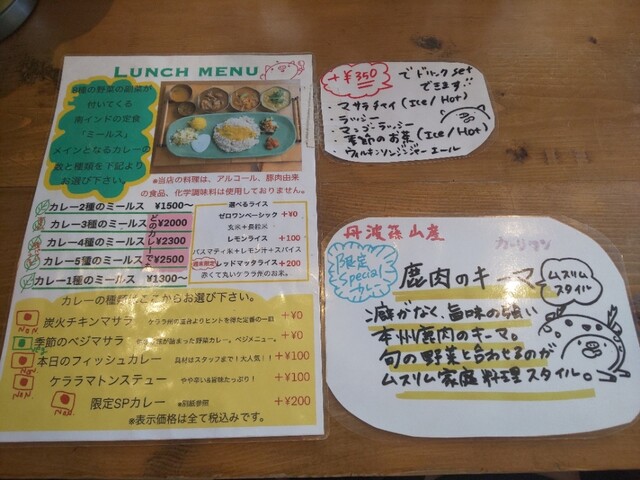 LUNCH MENU
8種の野菜の副菜が
付いてくる
南インドの定食
「ミールス」
メインとなるカレーの
数と種類を下記より
お選び下さい。
※当店の料理は、アルコール、豚肉由来
の食品、化学調味料は使用しておりません。
カレー2種のミールス ¥1500～
カレー3種のミールス ¥2000
カレー4種のミールス ¥2300
カレー5種のミールス ¥2500
カレー1種のミールス ¥1300～
どのカレーでも
選べるライス
ゼロワンベーシック +¥0
玄米+長粒米
レモンライス +100
バスマティ米+レモン汁+スパイス
週末限定 レッドマッタライス +200
赤くて丸いケララ州のお米。
カレーの種類はここからお選び下さい。
Non 炭火チキンマサラ ケララ州の屋台よりヒントを得た定番の一皿 +¥0
季節のベジマサラ が詰まった野菜カレー。ベジメニュー。 +¥0
Non 本日のフィッシュカレー 具材はスタッフまで!大人気!! +¥100
Non ケララマトンステュー やや辛い&旨味たっぷり! +¥100
Non 限定SPカレー ※別紙参照 +¥200
※表示価格は全て税込みです。
+¥350 でドリンクset
できます!!
・マサラチャイ (Ice/Hot)
・ラッシー
・マンゴーラッシー
・季節のお茶 (Ice/Hot)
・ウィルキンソンジンジャーエール
丹波篠山産
限定
Special
カレー
鹿肉のキーマ
ムスリム
スタイル
癖がなく、旨味の強い
本州鹿肉のキーマ。
旬の野菜と合わせるのが
ムスリム家庭料理スタイル。